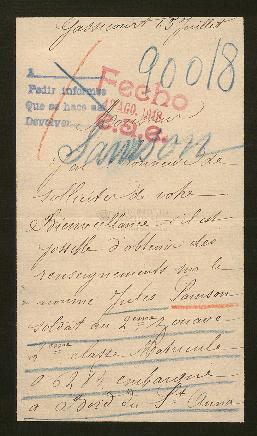 Gassicourt 15 Juillet
90018
A
Pedir informes
Que se hace así
Devolver
Fecho
AGO. 1918
Monsieur
Samson
J'ai l'honneur de
solliciter de votre
Bienveillance s'il est
possible d'obtenir des
renseignements sur le
nommé Jules Samson
soldat au 2eme Zouave
classe Matricule
embarqué
a Bord du St Anna